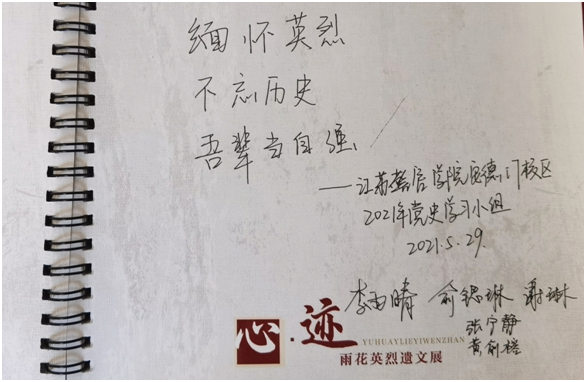 缅怀英烈
不忘历史
吾辈当自强
——江苏警官学院安德门校区
2021年党史学习小组
2021.5.29
李雨晴
张宁静
心·迹
YUHUAYLIEYIWENZHAN
雨花英烈遗文展